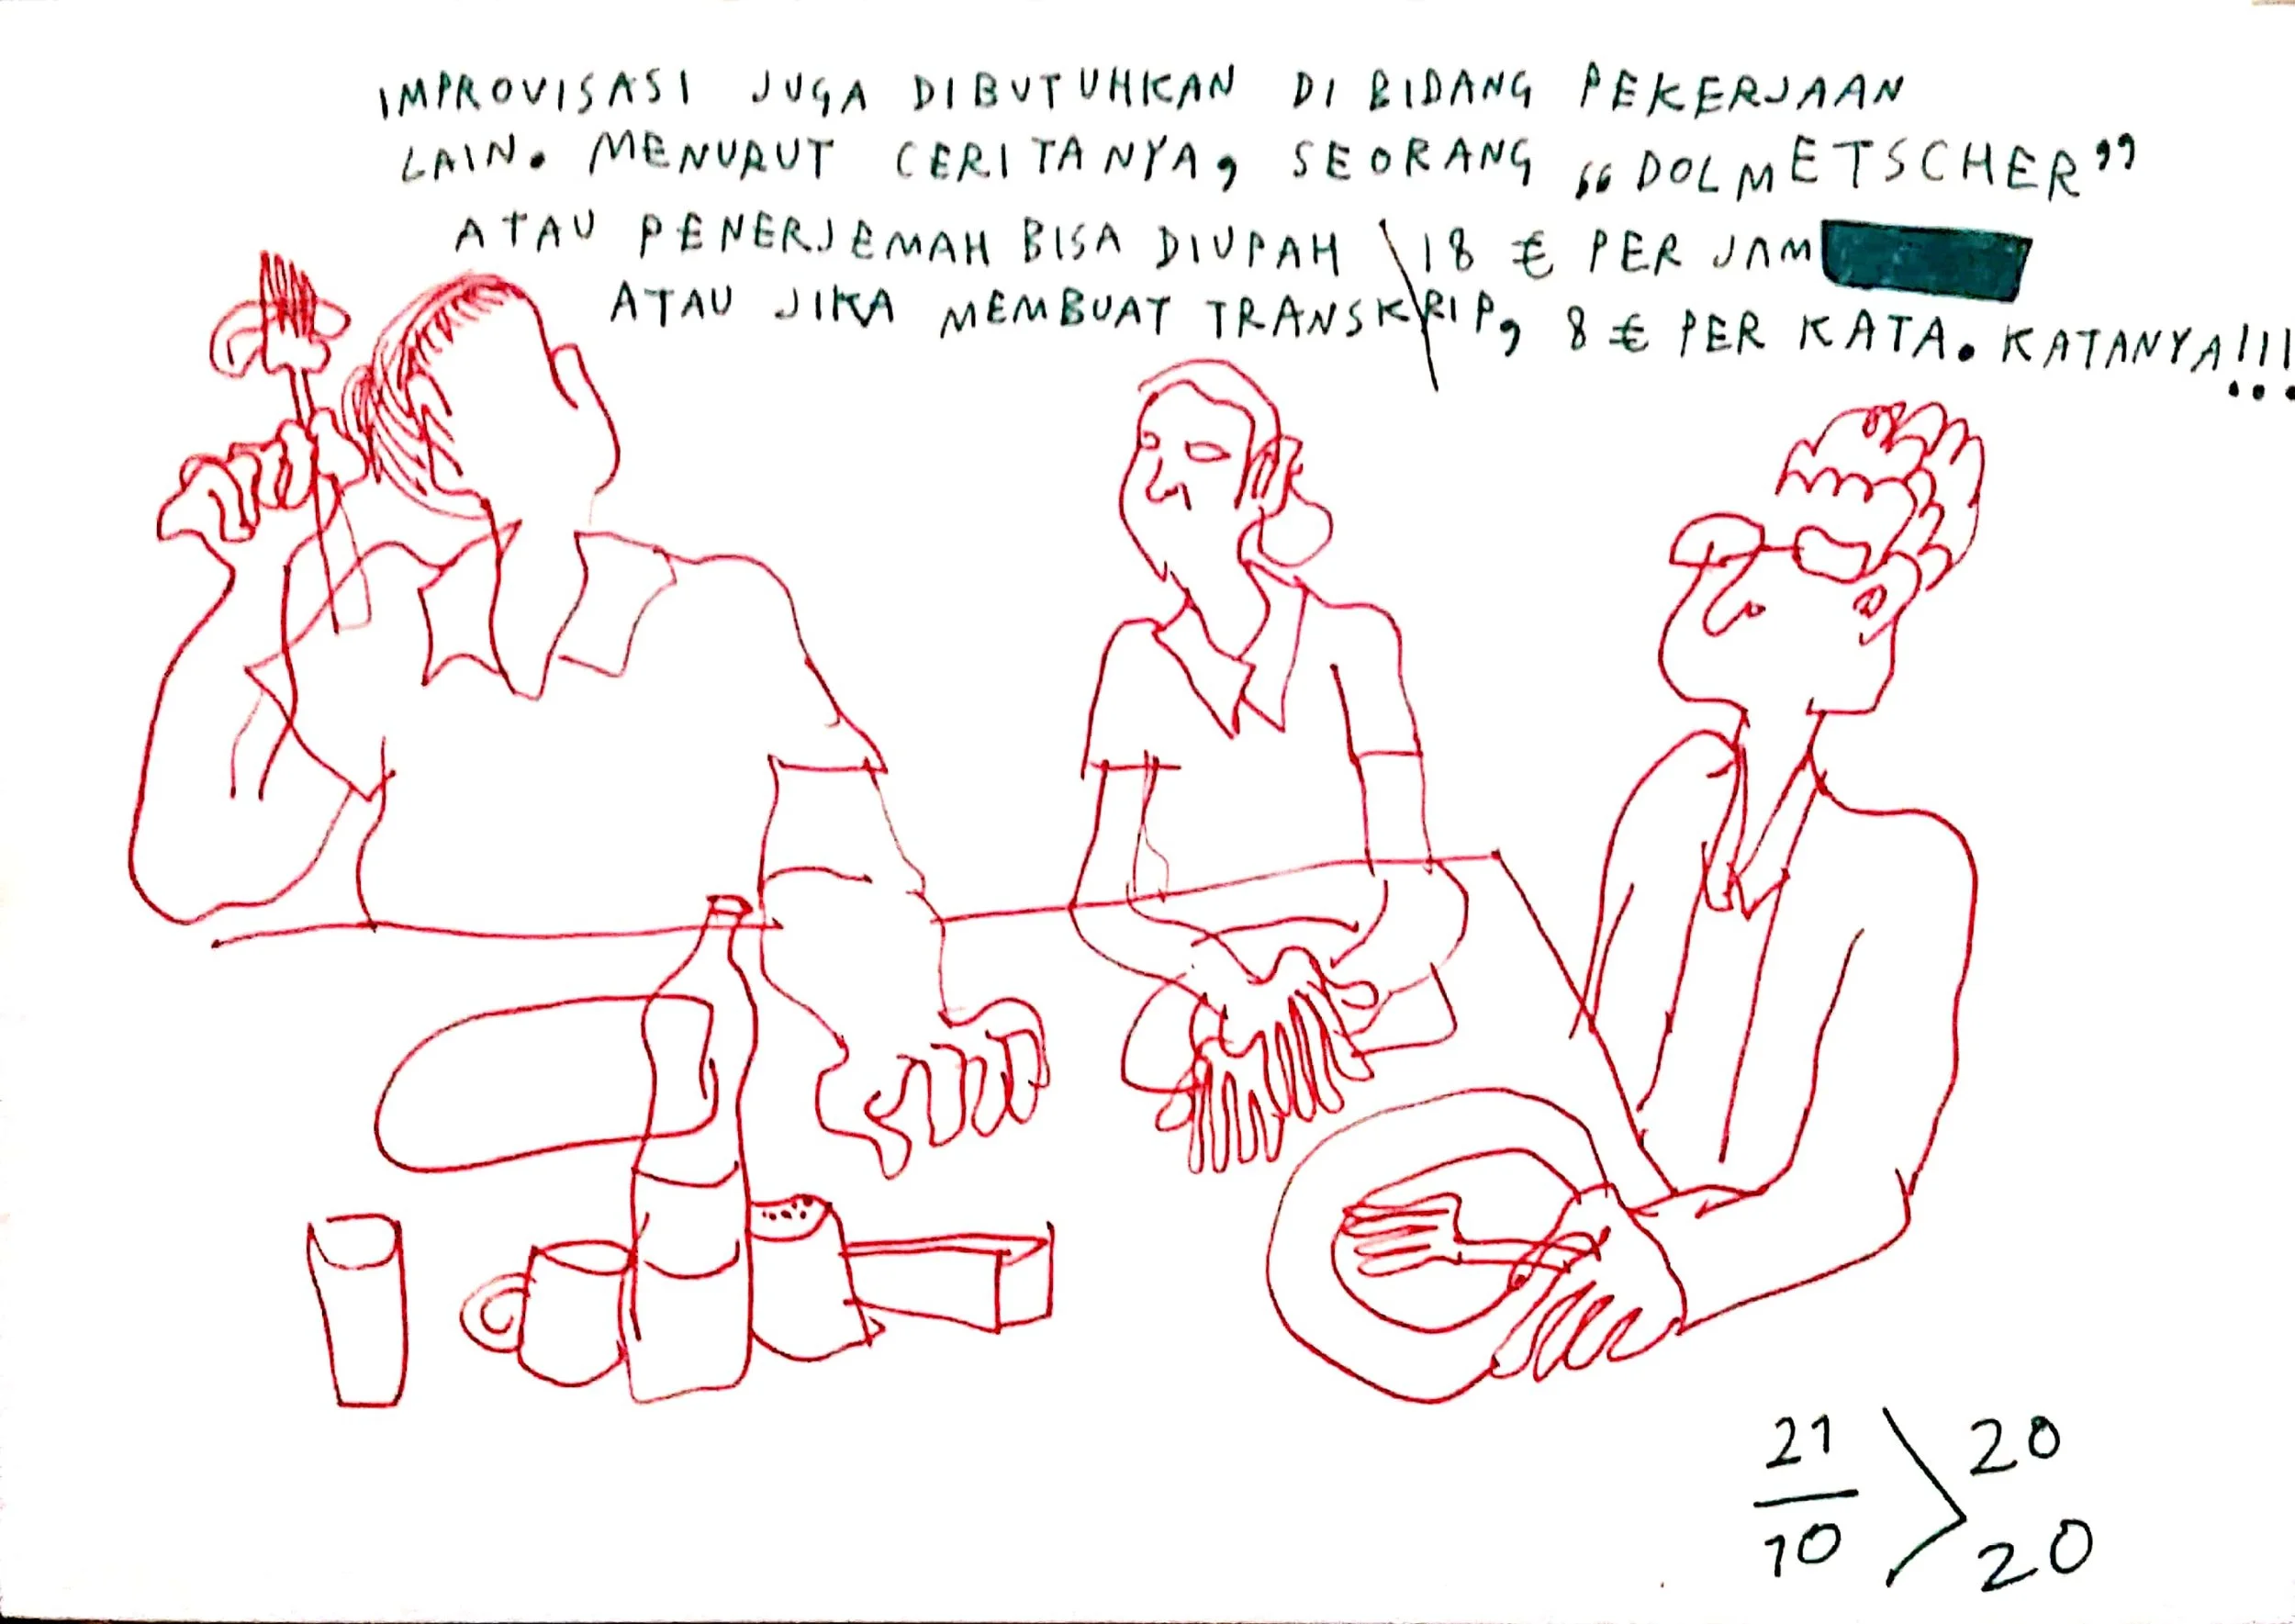 IMPROVISASI JUGA DIBUTUHKAN DI BIDANG PEKERJAAN
LAIN. MENURUT CERITANYA, SEORANG „DOLMETSCHER”
ATAU PENERJEMAH BISA DIUPAH \ 18 € PER JAM
ATAU JIKA MEMBUAT TRANSKRIP, 8 € PER KATA. KATANYA!!!
21 20
10 20